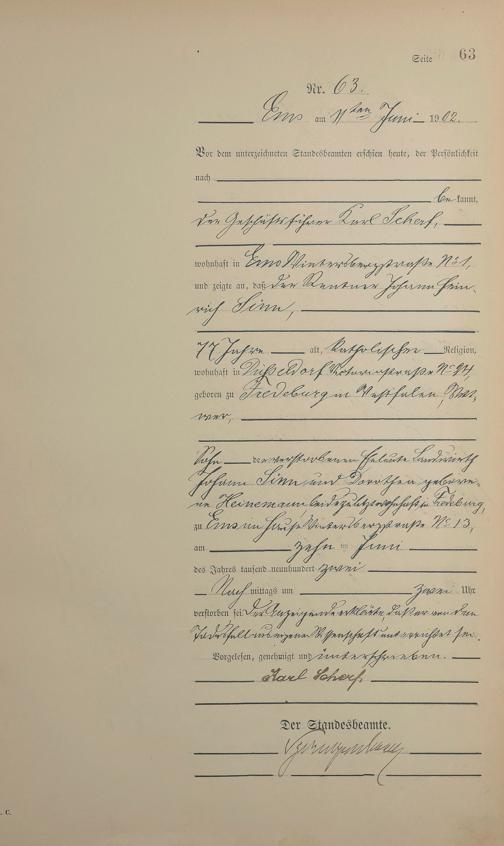 Seite 63
Nr. 63.
Ems am 11ten Juni 1902.
Vor dem unterzeichneten Standesbeamten erschien heute, der Persönlichkeit
nach
bekannt,
der Geschäftsführer Karl Scherf,
wohnhaft in Ems Wintersbergstraße No 1,
und zeigte an, daß der Rentner Johann Hein-
rich Sinn,
77 Jahre alt, katholischer Religion,
wohnhaft in Düsseldorf No 94,
geboren zu Fredeburg in Westfalen, Wit-
wer,
Sohn der verstorbenen Eheleute Landwirth
Johann Sinn und Dorothea gebore-
ne Heinemann, beide zuletzt wohnhaft in Fredeburg,
zu Ems im Hause Wintersbergstraße No 13,
am zehn ten Juni
des Jahres tausend neunhundert zwei
Nach mittags um zwei Uhr
verstorben sei. Der Anzeigende erklärte, daß er von dem
Todesfall aus eigener Wissenschaft unterrichtet sei.
Vorgelesen, genehmigt und unterschrieben.
Karl Scherf.
Der Standesbeamte.
. C.